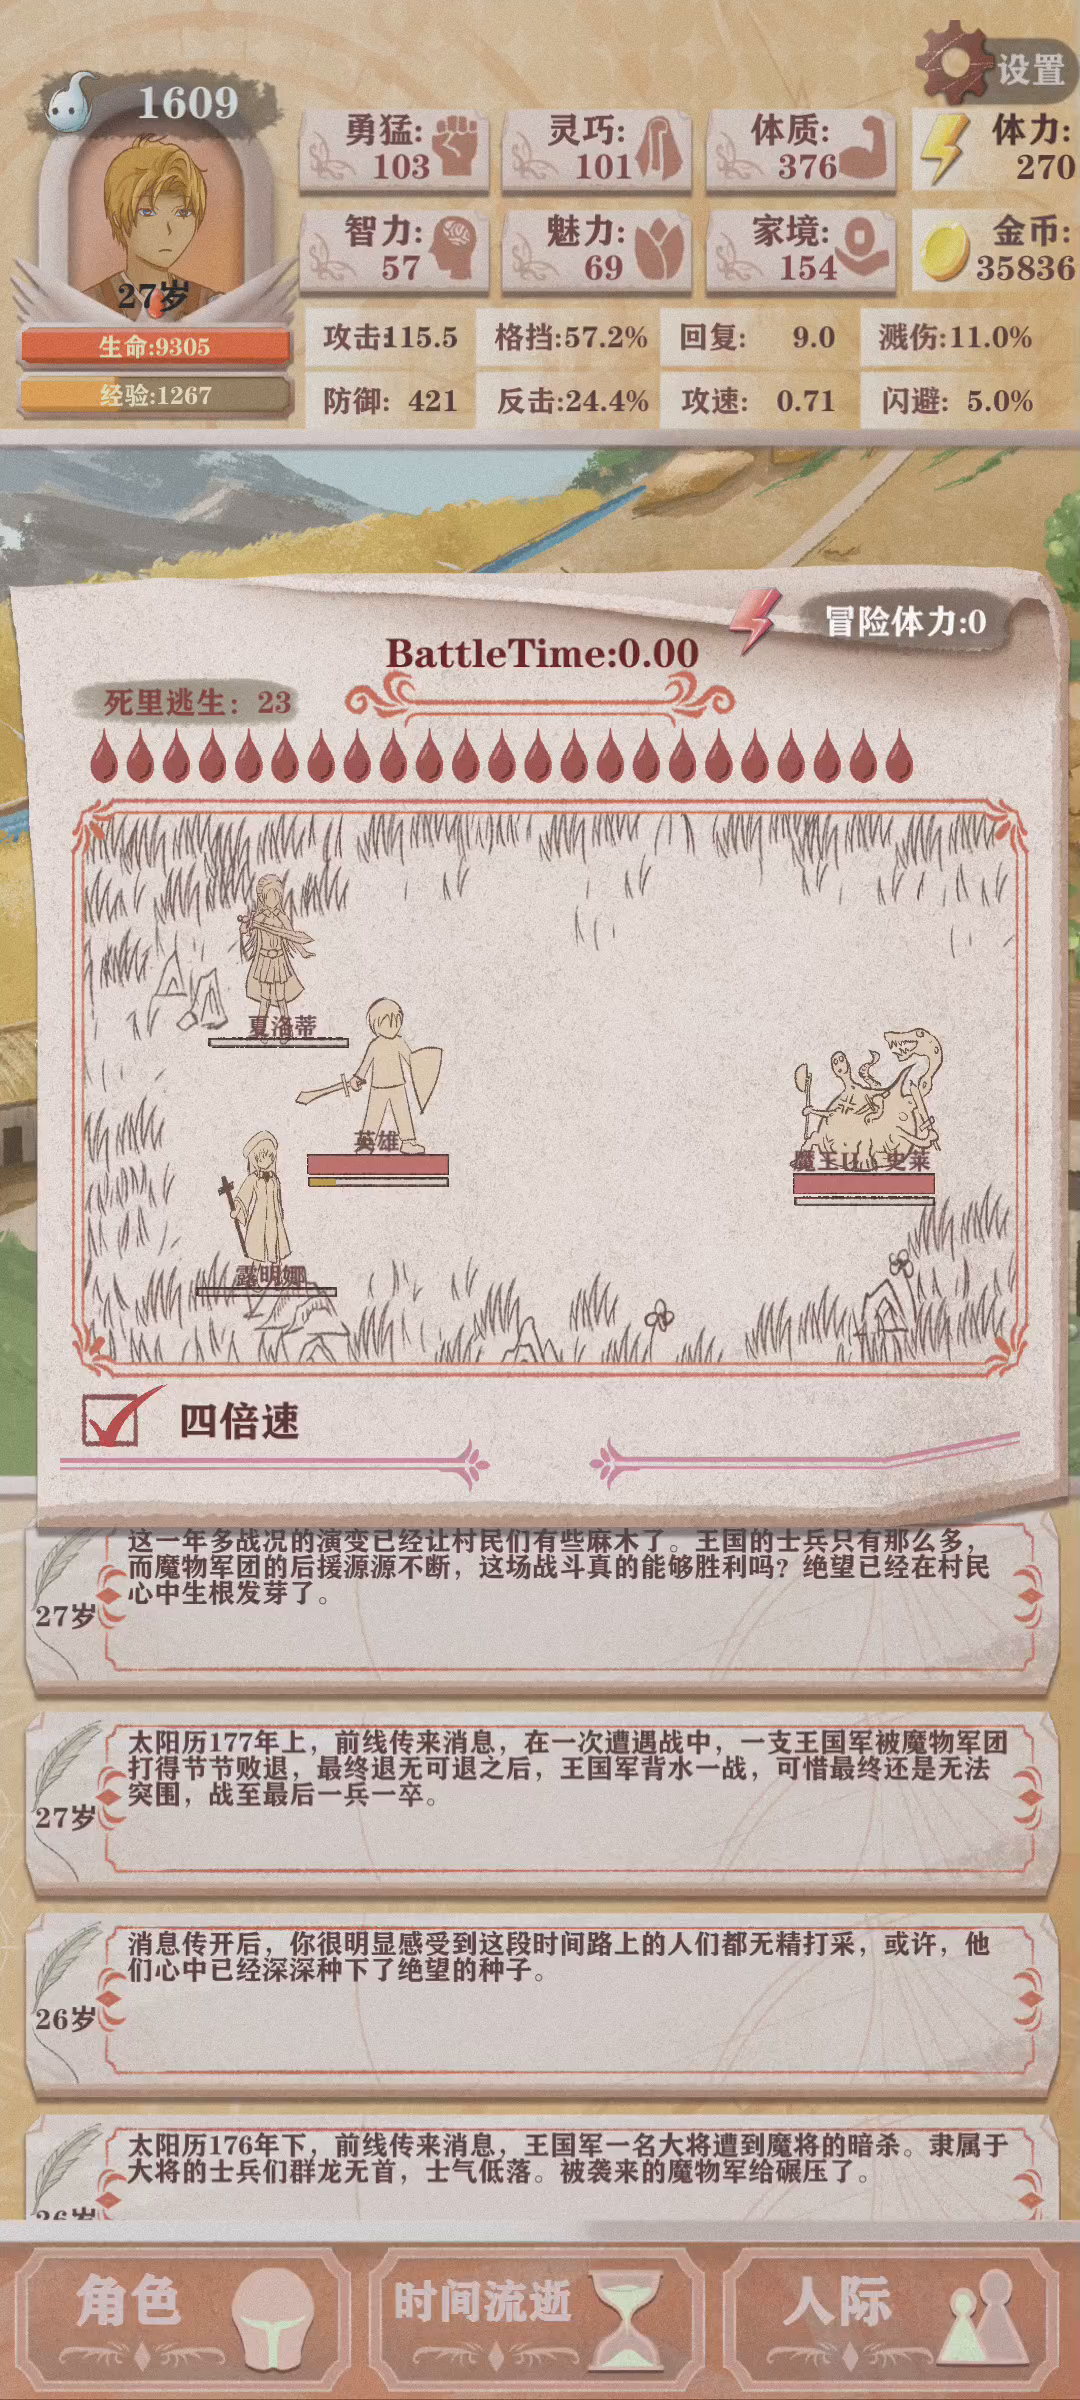 设置
1609
27岁
生命:9305
经验:1267
勇猛:
103
灵巧:
101
体质:
376
体力:
270
智力:
57
魅力:
69
家境:
154
金币:
35836
攻击:115.5
格挡:57.2%
回复: 9.0
溅伤:11.0%
防御: 421
反击:24.4%
攻速: 0.71
闪避: 5.0%
冒险体力:0
BattleTime:0.00
死里逃生: 23
夏洛蒂
英雄
露明娜
史莱
四倍速
这一年多战况的演变已经让村民们有些麻木了。王国的士兵只有那么多,
而魔物军团的后援源源不断,这场战斗真的能够胜利吗?绝望已经在村民
心中生根发芽了。
27岁
太阳历177年上,前线传来消息,在一次遭遇战中,一支王国军被魔物军团
打得节节败退,最终退无可退之后,王国军背水一战,可惜最终还是无法
突围,战至最后一兵一卒。
27岁
消息传开后,你很明显感受到这段时间路上的人们都无精打采,或许,他
们心中已经深深种下了绝望的种子。
26岁
太阳历176年下,前线传来消息,王国军一名大将遭到魔将的暗杀。隶属于
大将的士兵们群龙无首,士气低落。被袭来的魔物军给碾压了。
26岁
角色
时间流逝
人际